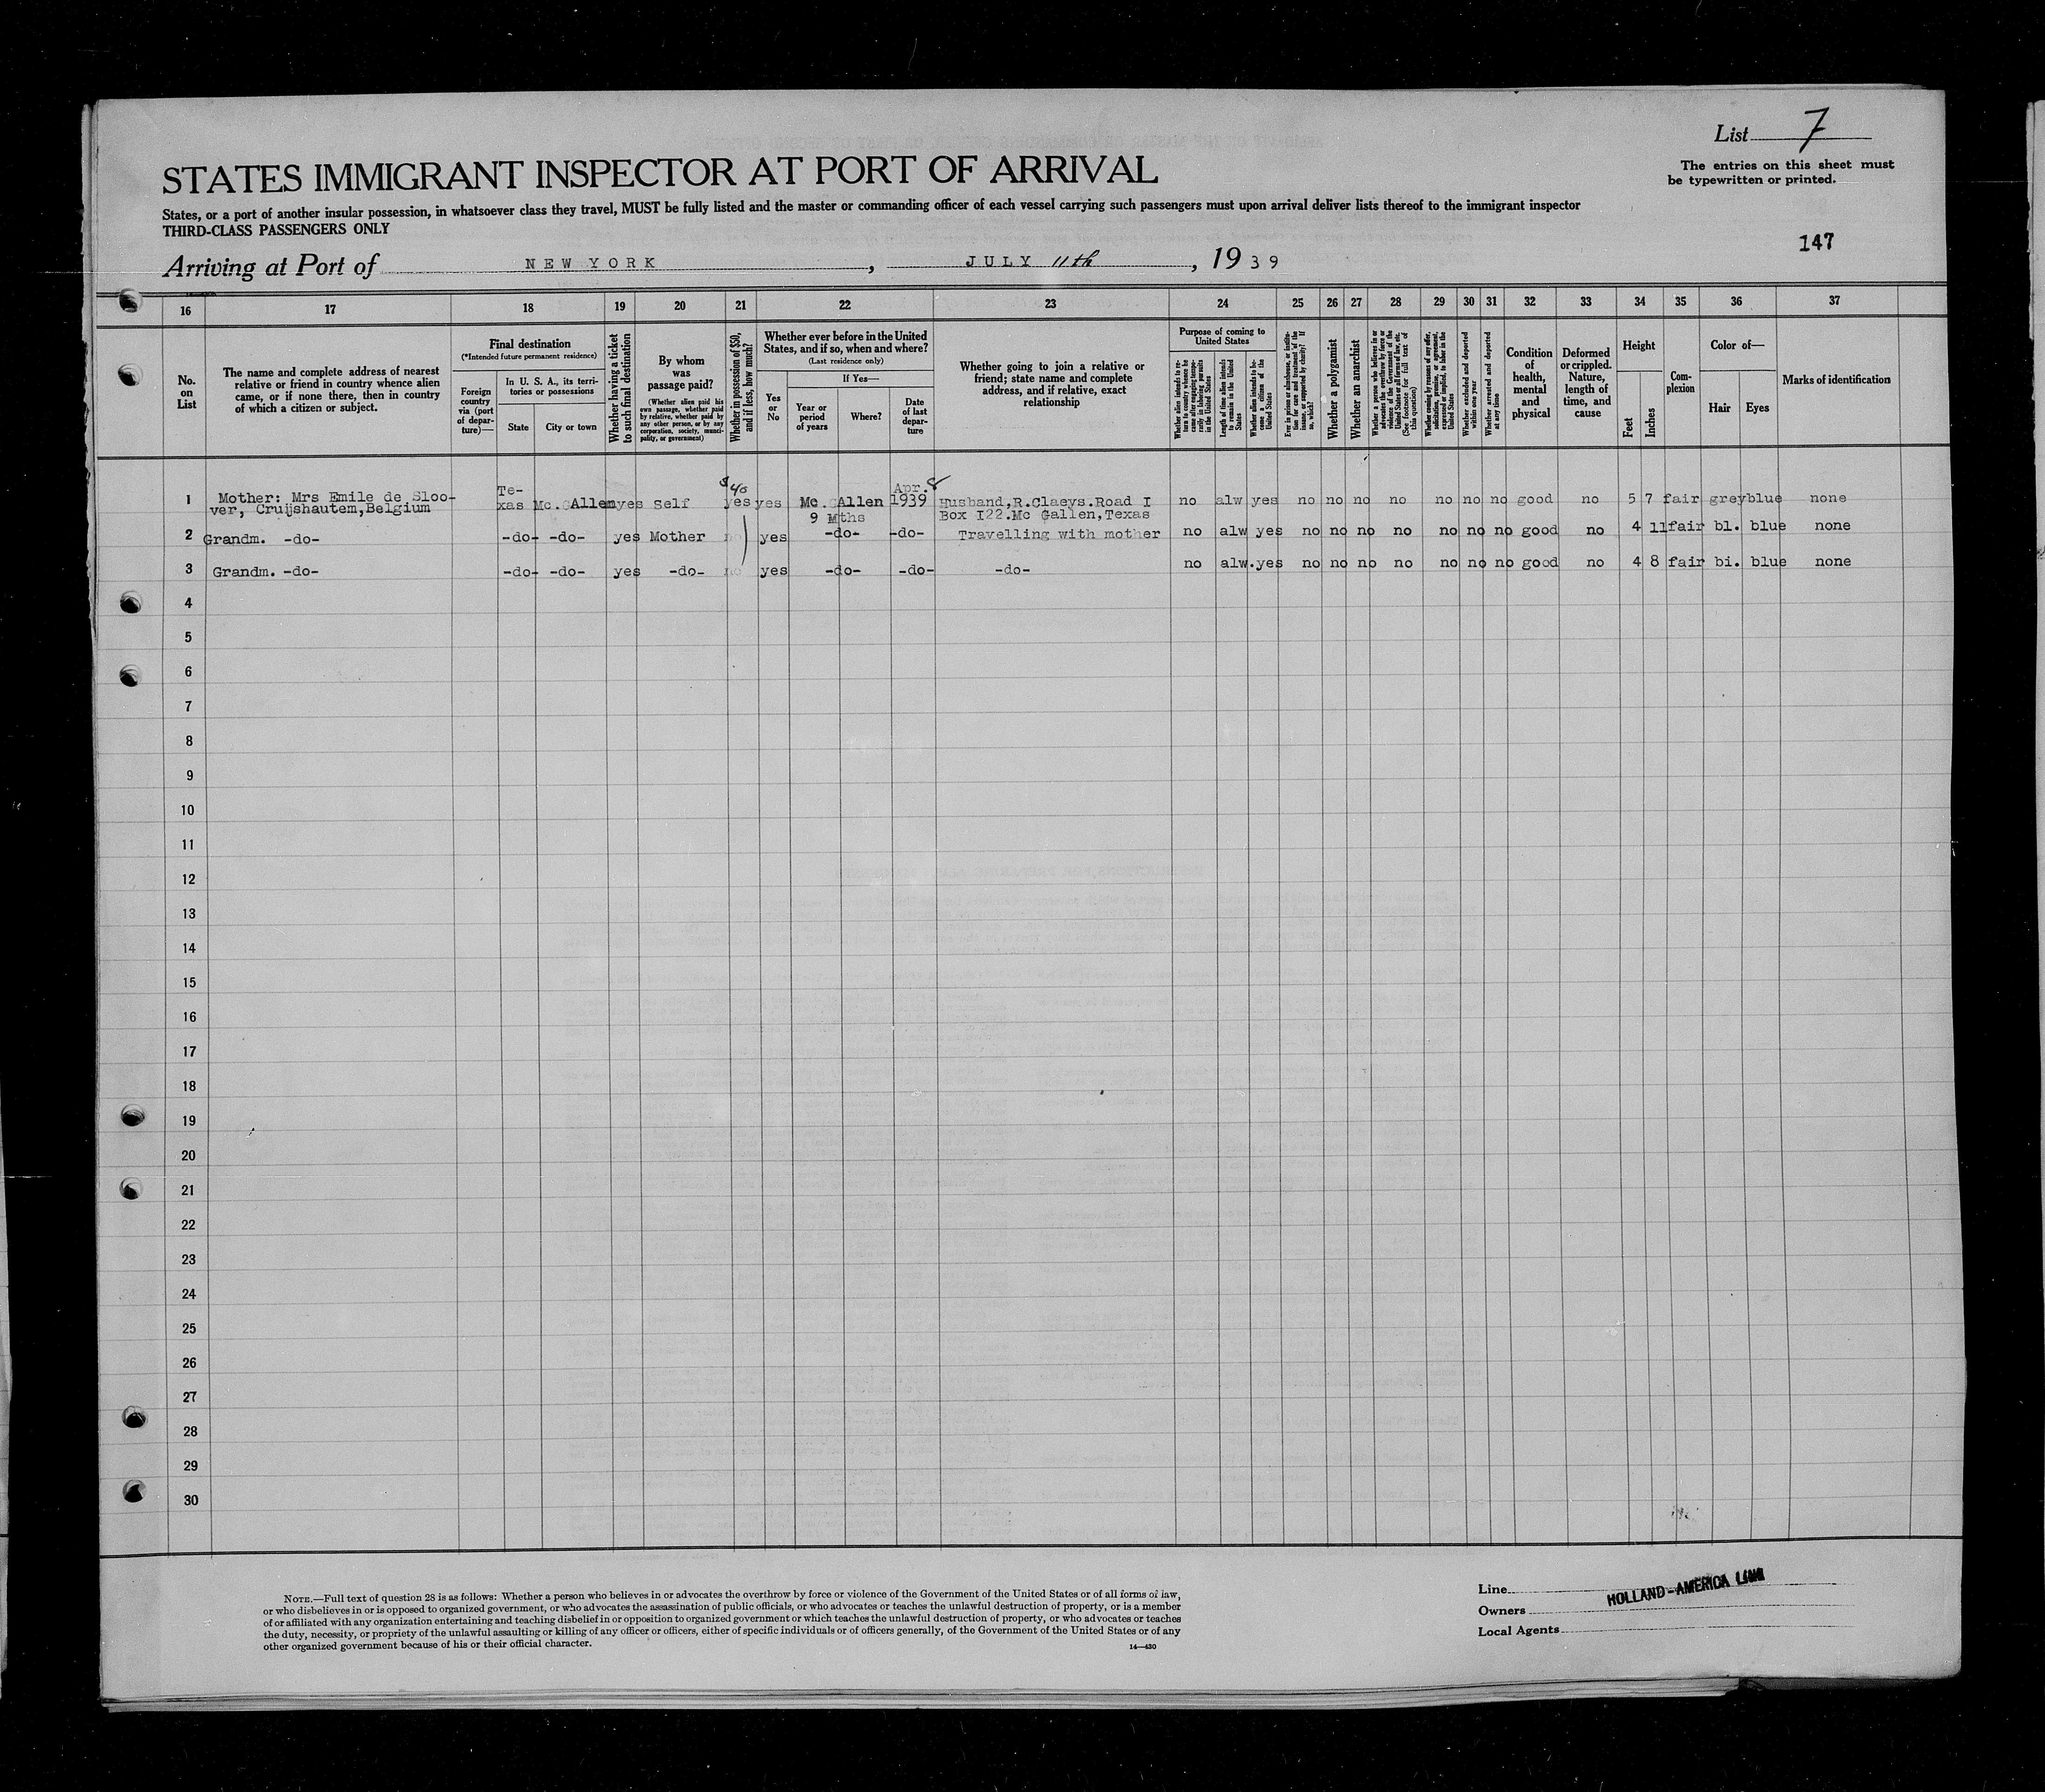 List 7
STATES IMMIGRANT INSPECTOR AT PORT OF ARRIVAL
The entries on this sheet must
be typewritten or printed.
States, or a port of another insular possession, in whatsoever class they travel, MUST be fully listed and the master or commanding officer of each vessel carrying such passengers must upon arrival deliver lists thereof to the immigrant inspector
THIRD-CLASS PASSENGERS ONLY
147
Arriving at Port of NEW YORK, JULY 11th, 1939
16 17 18 19 20 21 22 23 24 25 26 27 28 29 30 31 32 33 34 35 36 37
No.
on
List
The name and complete address of nearest
relative or friend in country whence alien
came, or if none there, then in country
of which a citizen or subject.
Final destination
(*Intended future permanent residence)
Foreign
country
via (port
of depar-
ture)—
In U. S. A., its terri-
tories or possessions
State
City or town
Whether having a ticket
to such final destination
By whom
was
passage paid?
(Whether alien paid his
own passage, whether paid
by relative, whether paid by
any other person, or by any
corporation, society, munici-
pality, or government)
Whether in possession of $50,
and if less, how much?
Whether ever before in the United
States, and if so, when and where?
(Last residence only)
Yes
or
No
If Yes—
Year or
period
of years
Where?
Date
of last
depar-
ture
Whether going to join a relative or
friend; state name and complete
address, and if relative, exact
relationship
Purpose of coming to
United States
Whether alien intends to re-
turn to country whence he
came after engaging tempo-
rarily in laboring pursuits
in the United States
Length of time alien intends
to remain in the United
States
Whether alien intends to be-
come a citizen of the
United States
Ever in prison or almshouse, or institu-
tion for care and treatment of the
insane, or supported by charity? If
so, which?
Whether a polygamist
Whether an anarchist
Whether a person who believes in or
advocates the overthrow by force or
violence of the Government of the
United States or all forms of law, etc.
(See footnote for full text of
this question)
Whether coming by reason of any offer,
solicitation, promise, or agreement,
expressed or implied, to labor in the
United States
Whether excluded and deported
within one year
Whether arrested and deported
at any time
Condition
of
health,
mental
and
physical
Deformed
or crippled.
Nature,
length of
time, and
cause
Height
Feet
Inches
Com-
plexion
Color of—
Hair
Eyes
Marks of identification
$40
Te-
Apr. 8
1 Mother: Mrs Emile de Sloo- xas Mc. Allen yes Self yes yes Mc. Allen 1939 Husband,R.Claeys.Road I no alw yes no no no no no no no good no 5 7 fair grey blue none
ver, Cruijshautem,Belgium 9 Mths Box I22.Mc Gallen,Texas
2 Grandm. -do- -do- -do- yes Mother no yes -do- -do- Travelling with mother no alw yes no no no no no no no good no 4 11 fair bl. blue none
3 Grandm. -do- -do- -do- yes -do- no yes -do- -do- -do- no alw. yes no no no no no no no good no 4 8 fair bi. blue none
4
5
6
7
8
9
10
11
12
13
14
15
16
17
18
19
20
21
22
23
24
25
26
27
28
29
30
NOTE.—Full text of question 28 is as follows: Whether a person who believes in or advocates the overthrow by force or violence of the Government of the United States or of all forms of law,
or who disbelieves in or is opposed to organized government, or who advocates the assassination of public officials, or who advocates or teaches the unlawful destruction of property, or is a member
of or affiliated with any organization entertaining and teaching disbelief in or opposition to organized government or which teaches the unlawful destruction of property, or who advocates or teaches
the duty, necessity, or propriety of the unlawful assaulting or killing of any officer or officers, either of specific individuals or of officers generally, of the Government of the United States or of any
other organized government because of his or their official character.
14—430
Line
Owners HOLLAND-AMERICA LINE
Local Agents